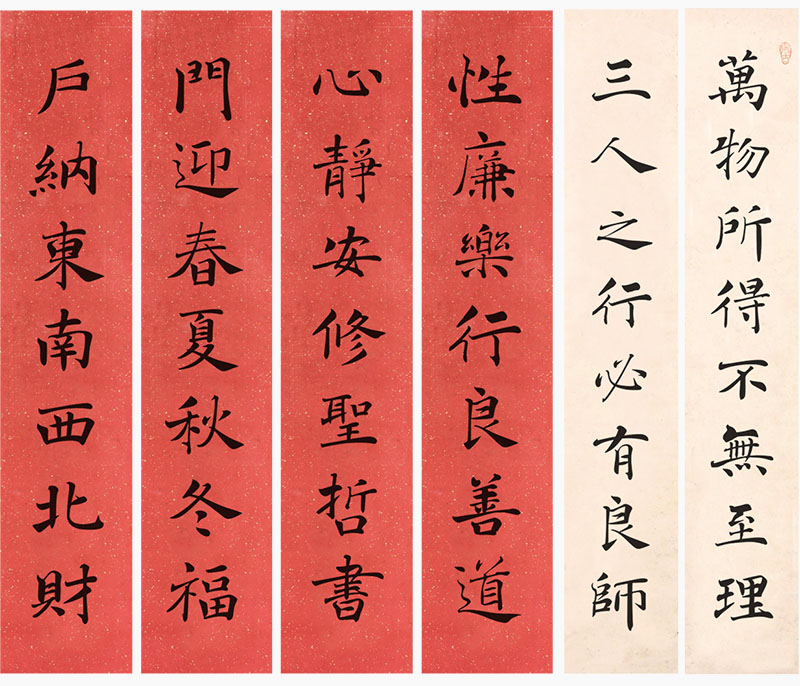 萬物所得不無至理
三人之行必有良師
性廉樂行良善道
心靜安修聖哲書
門迎春夏秋冬福
戶納東南西北財